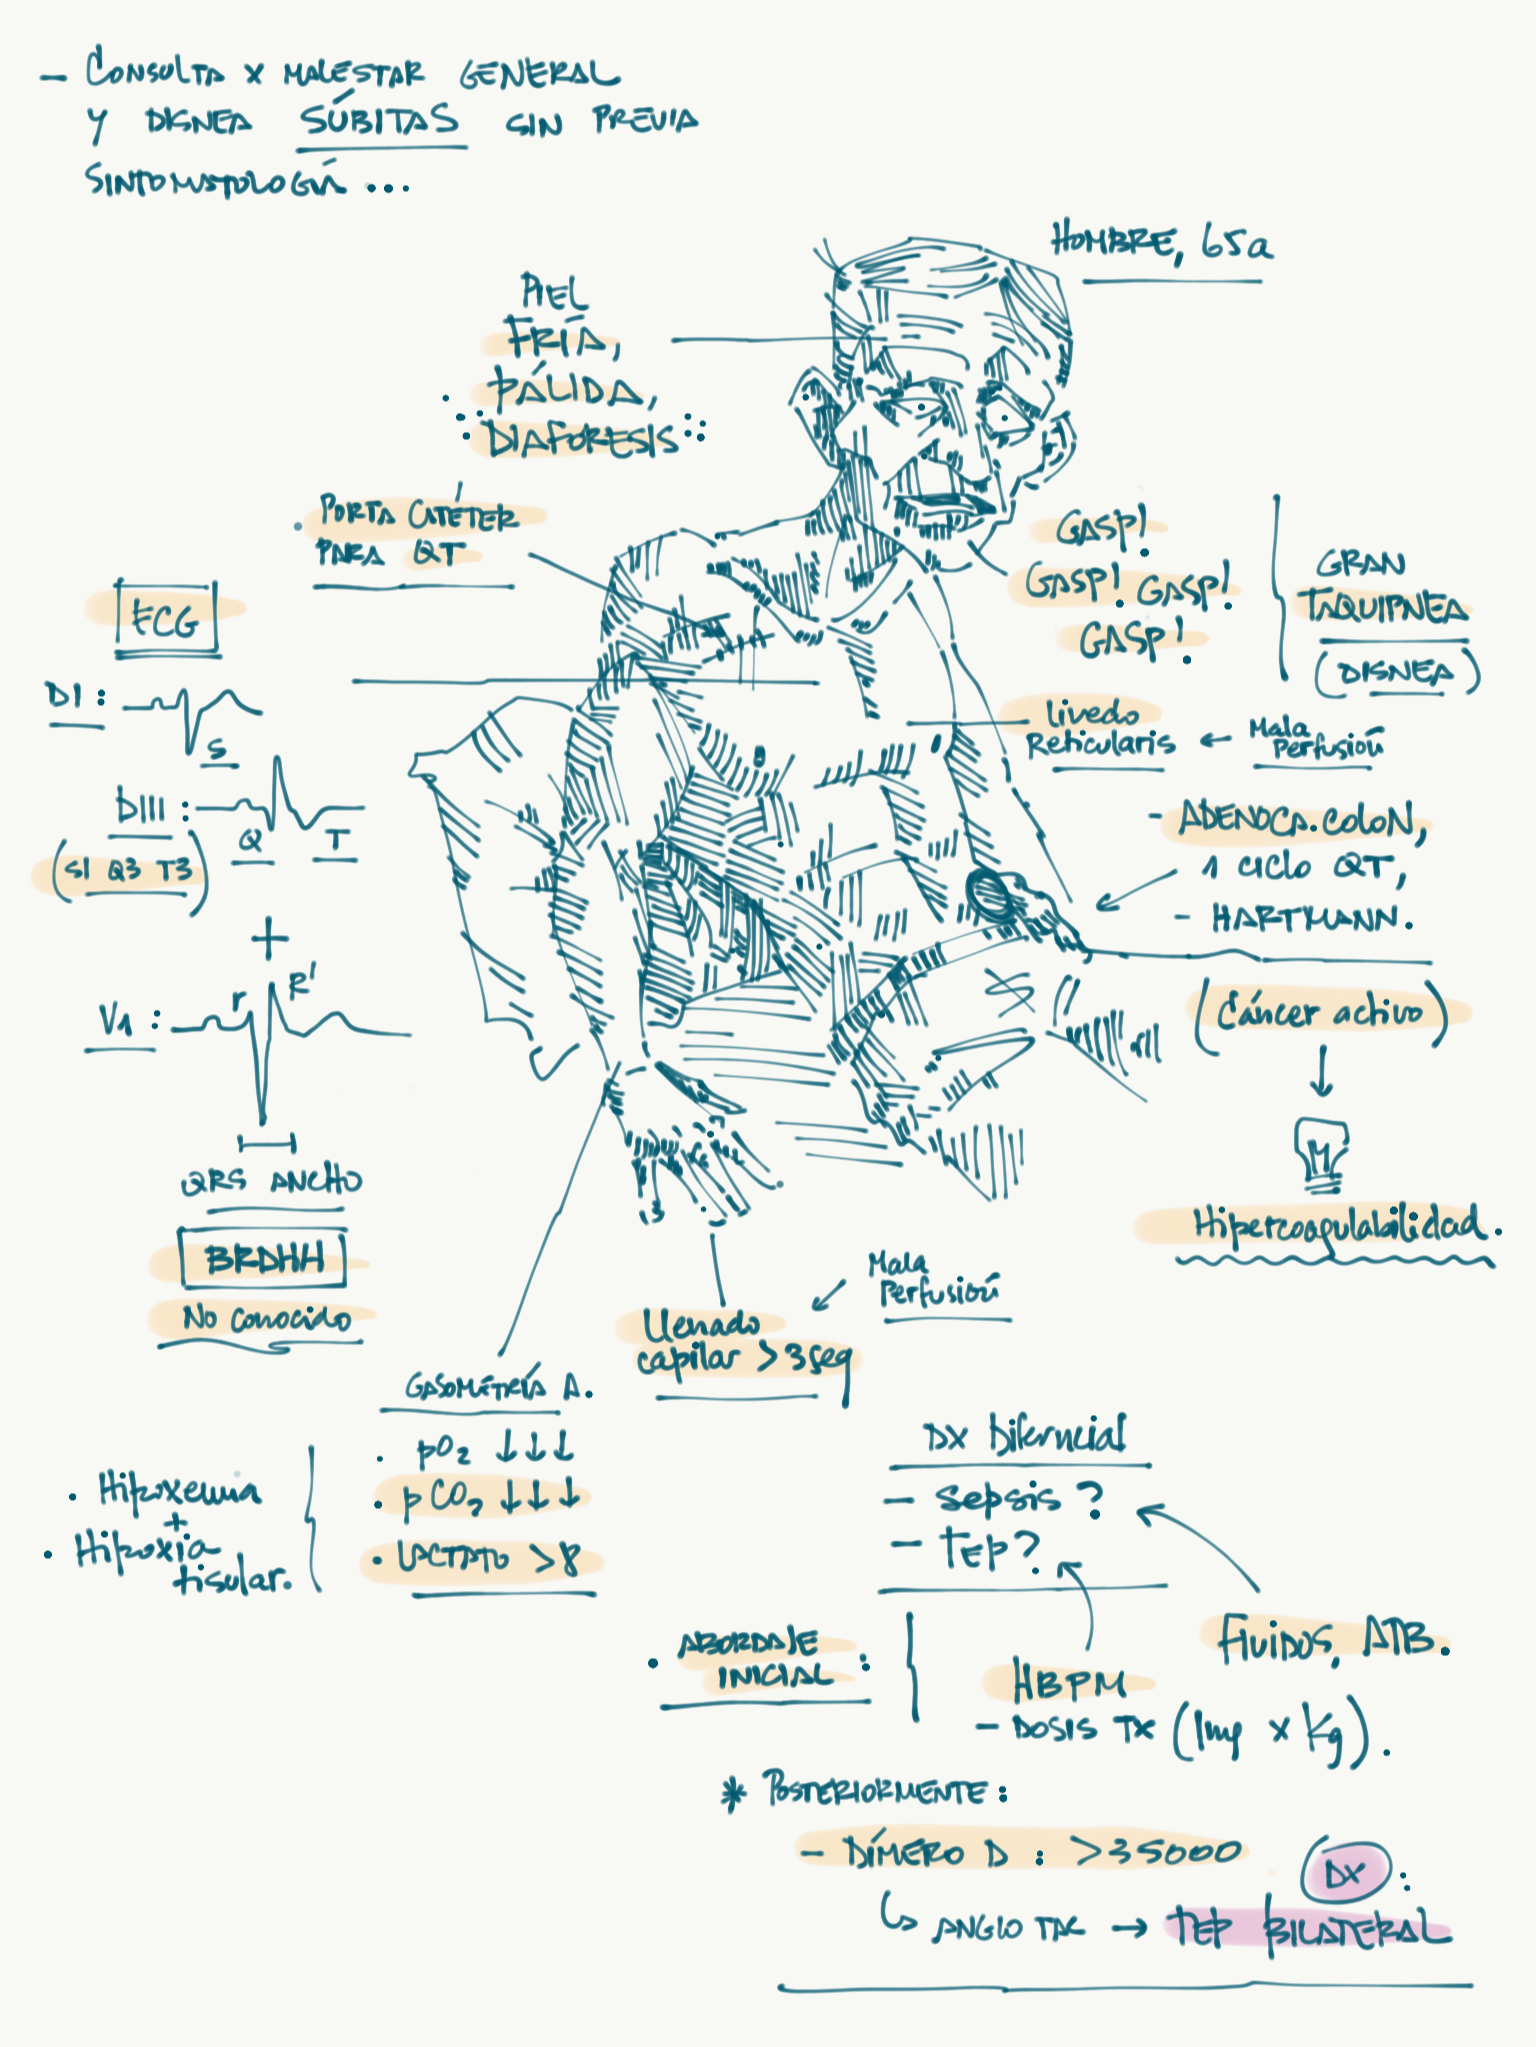 - CONSULTA X MALESTAR GENERAL
Y DISNEA SÚBITAS SIN PREVIA
SINTOMATOLOGÍA ...
HOMBRE, 65a
PIEL
FRÍA,
PÁLIDA,
DIAFORESIS
PORTA CATÉTER
PARA QT
GASP!
GASP! GASP!
GASP!
GRAN
TAQUIPNEA
(DISNEA)
ECG
DI:
S
DIII:
Q T
(S1 Q3 T3)
+
V1: r R'
QRS ANCHO
BRDHH
No conocido
Livedo
Reticularis ← Mala
Perfusión
- ADENOCA. COLON,
1 CICLO QT,
- HARTMANN.
(Cáncer activo)
↓
M
Hipercoagulabilidad.
Llenado
capilar > 3 seg
Mala
Perfusión
GASOMETRÍA A.
• pO2 ↓↓↓
• pCO2 ↓↓↓
• LACTATO > 8
• Hipoxemia
+
• Hipoxia
tisular.
DX Diferncial
- Sepsis?
- TEP?
• ABORDAJE
INICIAL :
Fluidos, ATB.
HBPM
- DOSIS TX (1mg x Kg).
* POSTERIORMENTE:
- DÍMERO D : > 35000
↳ ANGIO TAC → TEP BILATERAL
DX :